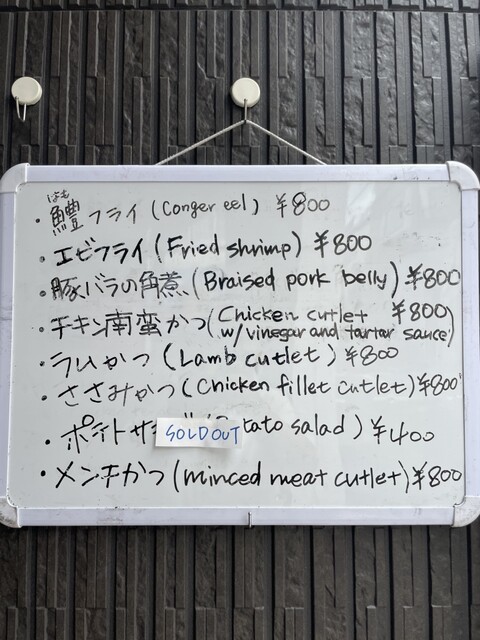 はも
・鱧フライ (Conger eel) ¥800
・エビフライ (Fried shrimp) ¥800
・豚バラの角煮 (Braised pork belly) ¥800
・チキン南蛮かつ (Chicken cutlet ¥800
w/vinegar and tartar sauce)
・ラムかつ (Lamb cutlet) ¥800
・ささみかつ (Chicken fillet cutlet) ¥800
・ポテトサ tato salad) ¥400
SOLD OUT
・メンチかつ (minced meat cutlet) ¥800